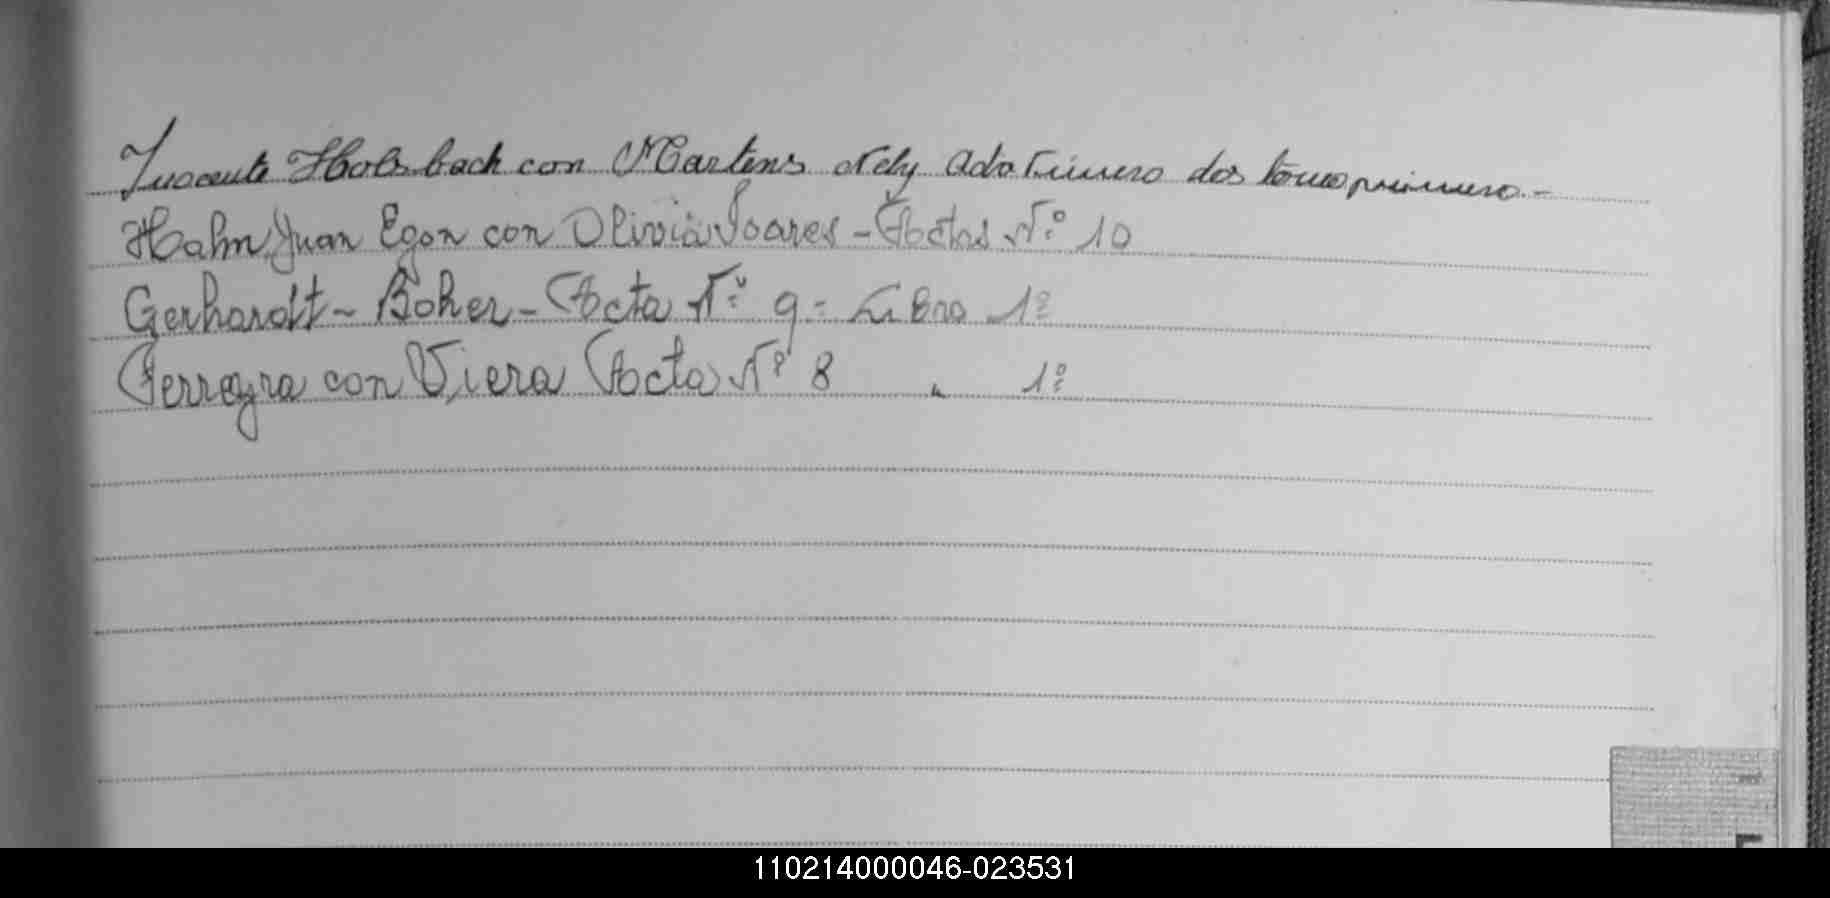 Inocente Holsbach con Martens Nely Ada Número dos tomo primero.-
Hahn Juan Egon con Olivia Soares - Actas Nº 10
Gerhardt - Boher - Acta Nº 9 = Libro 1º
Ferreyra con Viera Acta Nº 8 " 1º
110214000046-023531